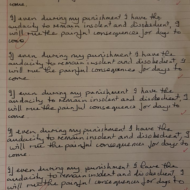 come.
If even during my punishment I have the
audacity to remain insolent and disobedient, I
will rue the painful consequences for days to
come.
If even during my punishment I have the
audacity to remain insolent and disobedient, I
will rue the painful consequences for days to
come.
If even during my punishment I have the
audacity to remain insolent and disobedient, I
will rue the painful consequences for days to
come.
If even during my punishment I have the
audacity to remain insolent and disobedient, I
will rue the painful consequences for days to
come.
If even during my punishment I have then
audacity to remain insolent and disobedient, I
will rue the painful consequences for days to